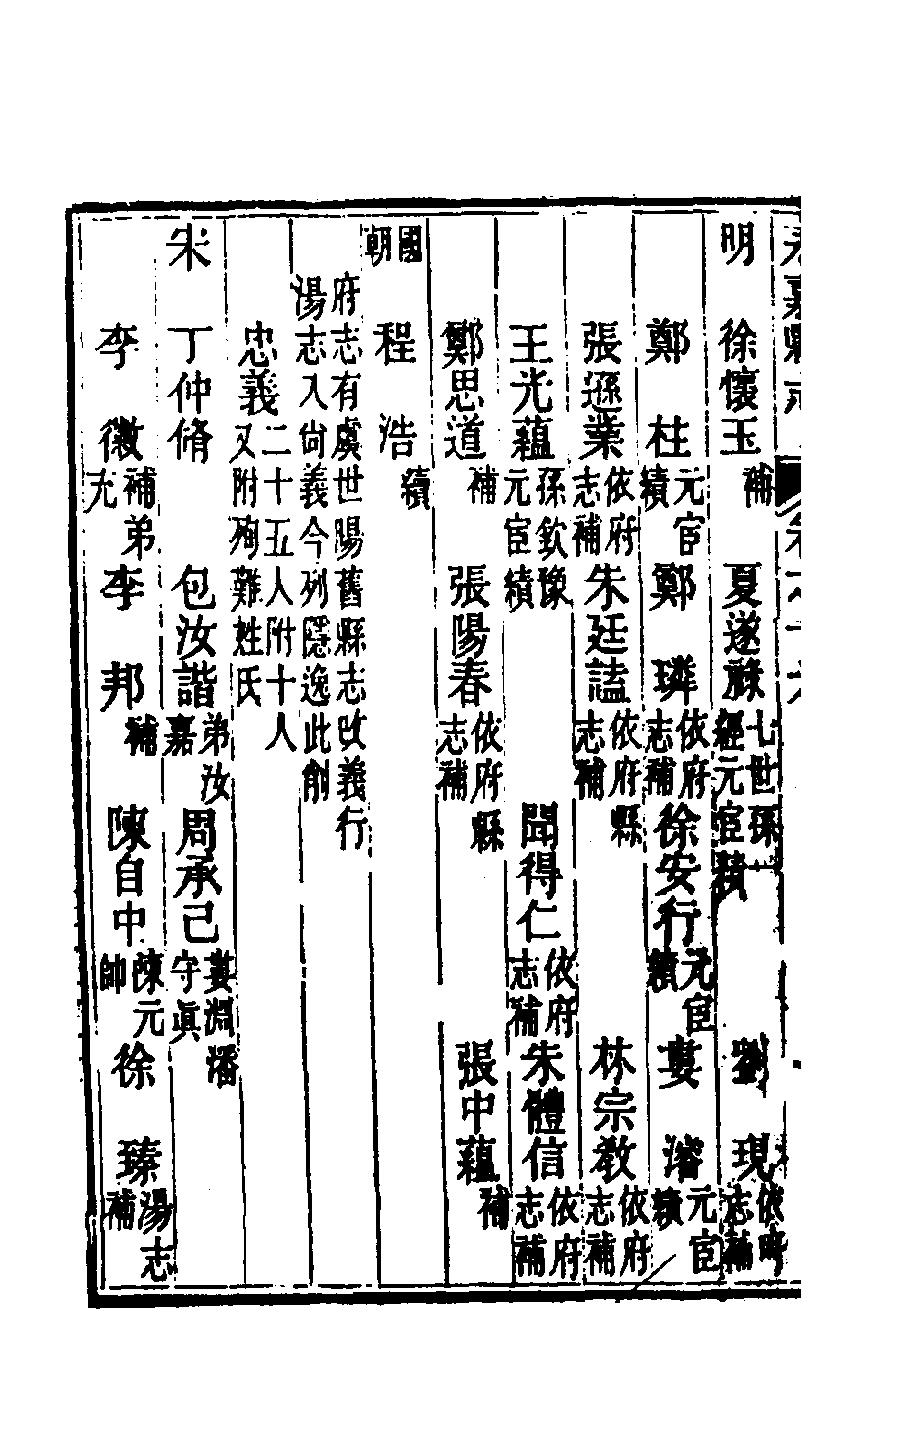 永嘉縣志
明 徐懷玉 補 夏遂祿 七世孫一經元宦蹟 劉現 依府志補
鄭柱 元宦績 鄭璘 依府志補 徐安行 元宦績 婁濬 元宦績
張遜業 依府志補 朱廷 依府縣志補 林宗教 依府志補
王光蘊 孫欽豫元宦績 聞得仁 依府志補 朱體信 依府志補
鄭思道 補 張陽春 依府縣志補 張中蘊 補
國朝 程浩 續
府志有虞世陽舊縣志改義行
湯志入尚義今列隱逸此削
忠義 二十五人附十人又附殉難姓氏
宋 丁仲脩 包汝諧 弟汝嘉 周承己 婁淵潘守眞
李徽 補弟充 李邦 補 陳自中 陳元帥 徐臻 湯志補